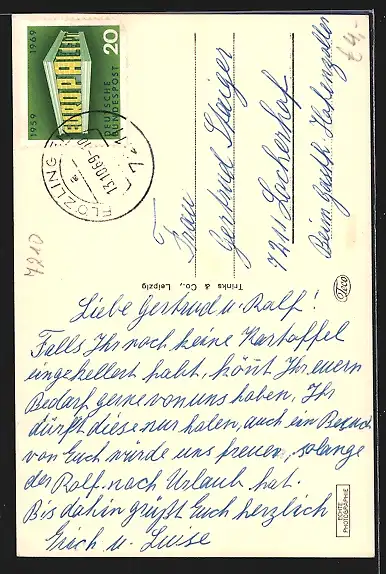 1959 1969
EUROPA CEPT
DEUTSCHE BUNDESPOST
20
FLÖZLINGEN
721
13.10.69-10
a
Frau
Gertrud Staiger
7211 Lackerhof
Beim Gasth. Hohenzoller
£4,-
7210
Trinks & Co., Leipzig
Trco
Liebe Gertrud u. Ralf!
Falls Ihr noch keine Kartoffel
eingekellert habt, könnt Ihr euern
Bedarf gerne von uns haben. Ihr
dürft diese nur holen, auch ein Besuch
von Euch würde uns freuen, solange
der Ralf noch Urlaub hat.
Bis dahin grüßt Euch herzlich
Erich u. Luise
ECHTE PHOTOGRAPHIE